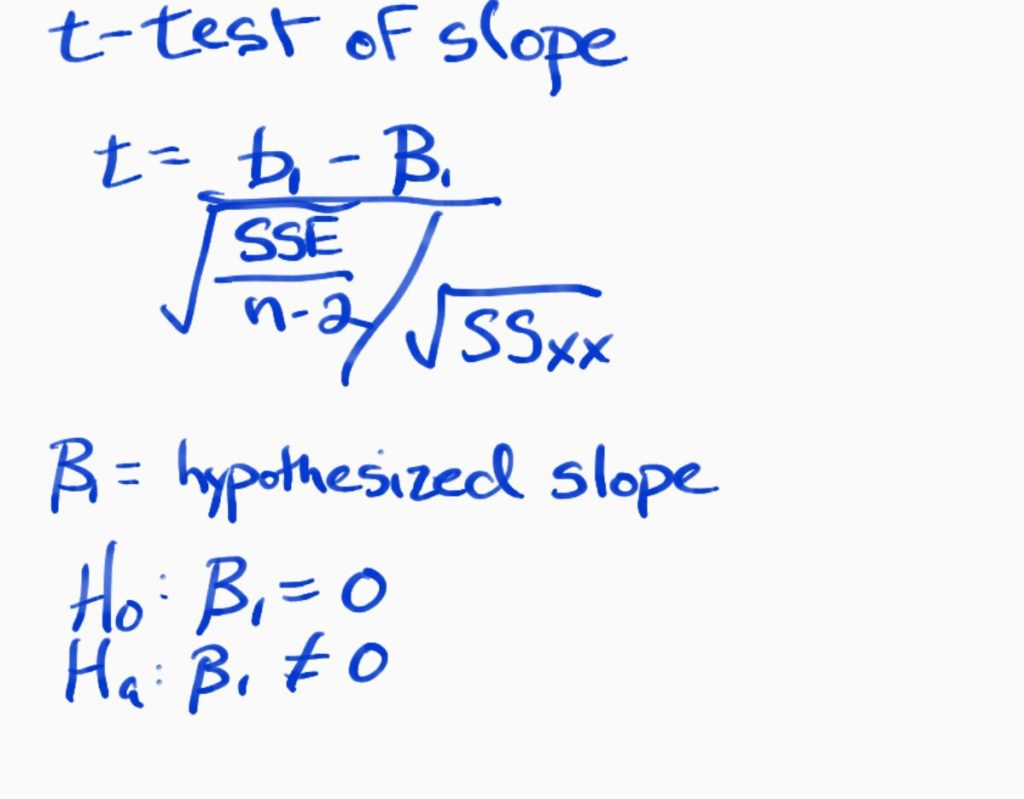 t-test of slope
t = b₁ - β₁
√(SSE / n-2) / √SSxx
β₁ = hypothesized slope
H₀: β₁ = 0
Hₐ: β₁ ≠ 0